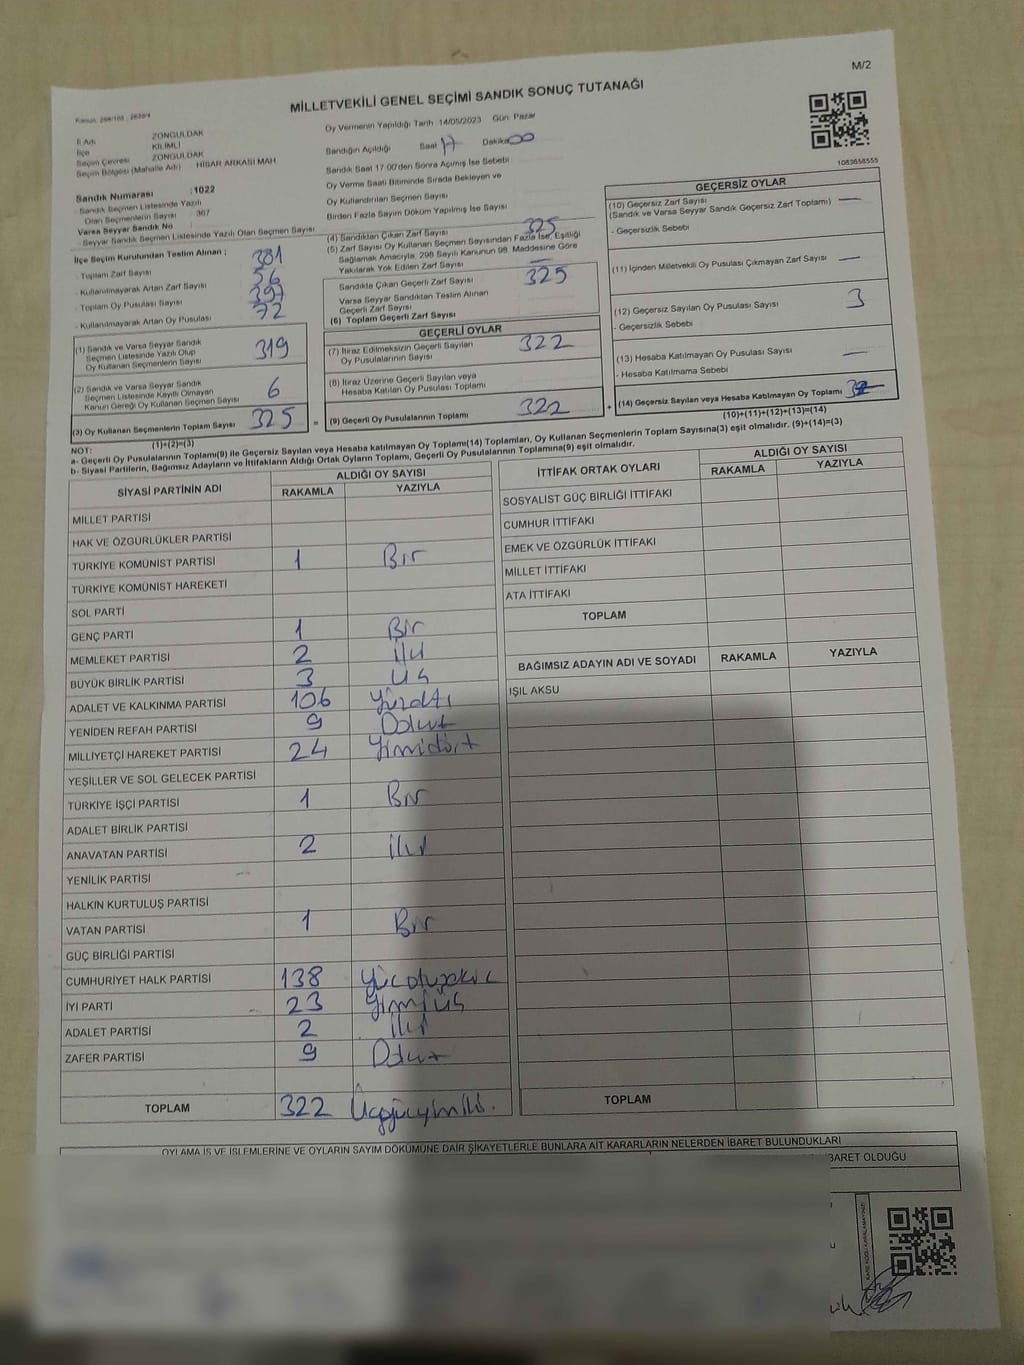 M/2
MİLLETVEKİLİ GENEL SEÇİMİ SANDIK SONUÇ TUTANAĞI
İl Adı ZONGULDAK
İlçe KİLİMLİ
Seçim Çevresi ZONGULDAK
Seçim Bölgesi (Mahalle Adı) HİSAR ARKASI MAH
Sandık Numarası :1022
Sandık Seçmen Listesinde Yazılı
Olan Seçmenlerin Sayısı : 367
Varsa Seyyar Sandık No :
- Seyyar Sandık Seçmen Listesinde Yazılı Olan Seçmen Sayısı
İlçe Seçim Kurulundan Teslim Alınan ;
- Toplam Zarf Sayısı : 381
- Kullanılmayarak Artan Zarf Sayısı : 56
- Toplam Oy Pusulası Sayısı : 397
- Kullanılmayarak Artan Oy Pusulası : 72
(1) Sandık ve Varsa Seyyar Sandık
Seçmen Listesinde Yazılı Olup
Oy Kullanan Seçmenlerin Sayısı 319
(2) Sandık ve Varsa Seyyar Sandık
Seçmen Listesinde Kayıtlı Olmayan
Kanun Gereği Oy Kullanan Seçmen Sayısı 6
(3) Oy Kullanan Seçmenlerin Toplam Sayısı 325
(1)+(2)=(3)
Oy Vermenin Yapıldığı Tarih 14/05/2023 Gün Pazar
Sandığın Açıldığı Saat 17 Dakika 00
Sandık Saat 17:00'den Sonra Açılmış İse Sebebi
Oy Verme Saati Bitiminde Sırada Bekleyen ve
Oy Kullandırılan Seçmen Sayısı
Birden Fazla Sayım Döküm Yapılmış İse Sayısı
(4) Sandıktan Çıkan Zarf Sayısı 325
(5) Zarf Sayısı Oy Kullanan Seçmen Sayısından Fazla İse, Eşitliği
Sağlamak Amacıyla, 298 Sayılı Kanunun 98. Maddesine Göre
Yakılarak Yok Edilen Zarf Sayısı —
Sandıkta Çıkan Geçerli Zarf Sayısı 325
Varsa Seyyar Sandıktan Teslim Alınan
Geçerli Zarf Sayısı
(6) Toplam Geçerli Zarf Sayısı
GEÇERLİ OYLAR
(7) İtiraz Edilmeksizin Geçerli Sayılan
Oy Pusulalarının Sayısı 322
(8) İtiraz Üzerine Geçerli Sayılan veya
Hesaba Katılan Oy Pusulası Toplamı
= (9) Geçerli Oy Pusulalarının Toplamı 322 +
1083658555
GEÇERSİZ OYLAR
(10) Geçersiz Zarf Sayısı —
(Sandık ve Varsa Seyyar Sandık Geçersiz Zarf Toplamı)
- Geçersizlik Sebebi
(11) İçinden Milletvekili Oy Pusulası Çıkmayan Zarf Sayısı —
(12) Geçersiz Sayılan Oy Pusulası Sayısı 3
- Geçersizlik Sebebi
(13) Hesaba Katılmayan Oy Pusulası Sayısı —
- Hesaba Katılmama Sebebi
(14) Geçersiz Sayılan veya Hesaba Katılmayan Oy Toplamı
(10)+(11)+(12)+(13)=(14)
NOT:
a- Geçerli Oy Pusulalarının Toplamı(9) ile Geçersiz Sayılan veya Hesaba katılmayan Oy Toplamı(14) Toplamları, Oy Kullanan Seçmenlerin Toplam Sayısına(3) eşit olmalıdır. (9)+(14)=(3)
b- Siyasi Partilerin, Bağımsız Adayların ve İttifakların Aldığı Ortak Oyların Toplamı, Geçerli Oy Pusulalarının Toplamına(9) eşit olmalıdır.
SİYASİ PARTİNİN ADI ALDIĞI OY SAYISI
RAKAMLA YAZIYLA
MİLLET PARTİSİ
HAK VE ÖZGÜRLÜKLER PARTİSİ
TÜRKİYE KOMÜNİST PARTİSİ 1 Bir
TÜRKİYE KOMÜNİST HAREKETİ
SOL PARTİ
GENÇ PARTİ 1 Bir
MEMLEKET PARTİSİ 2 iki
BÜYÜK BİRLİK PARTİSİ 3 üç
ADALET VE KALKINMA PARTİSİ 106 Yüzaltı
YENİDEN REFAH PARTİSİ 9 Dokuz
MİLLİYETÇİ HAREKET PARTİSİ 24 Yirmidört
YEŞİLLER VE SOL GELECEK PARTİSİ
TÜRKİYE İŞÇİ PARTİSİ 1 Bir
ADALET BİRLİK PARTİSİ
ANAVATAN PARTİSİ 2 iki
YENİLİK PARTİSİ
HALKIN KURTULUŞ PARTİSİ
VATAN PARTİSİ 1 Bir
GÜÇ BİRLİĞİ PARTİSİ
CUMHURİYET HALK PARTİSİ 138 Yüzotuzsekiz
İYİ PARTİ 23 Yirmiüç
ADALET PARTİSİ 2 iki
ZAFER PARTİSİ 9 Dokuz
TOPLAM 322 Üçyüzyirmiiki.
İTTİFAK ORTAK OYLARI ALDIĞI OY SAYISI
RAKAMLA YAZIYLA
SOSYALİST GÜÇ BİRLİĞİ İTTİFAKI
CUMHUR İTTİFAKI
EMEK VE ÖZGÜRLÜK İTTİFAKI
MİLLET İTTİFAKI
ATA İTTİFAKI
TOPLAM
BAĞIMSIZ ADAYIN ADI VE SOYADI RAKAMLA YAZIYLA
IŞIL AKSU
TOPLAM
OYLAMA İŞ VE İŞLEMLERİNE VE OYLARIN SAYIM DÖKÜMÜNE DAİR ŞİKAYETLERLE BUNLARA AİT KARARLARIN NELERDEN İBARET BULUNDUKLARI
BARET OLDUĞU